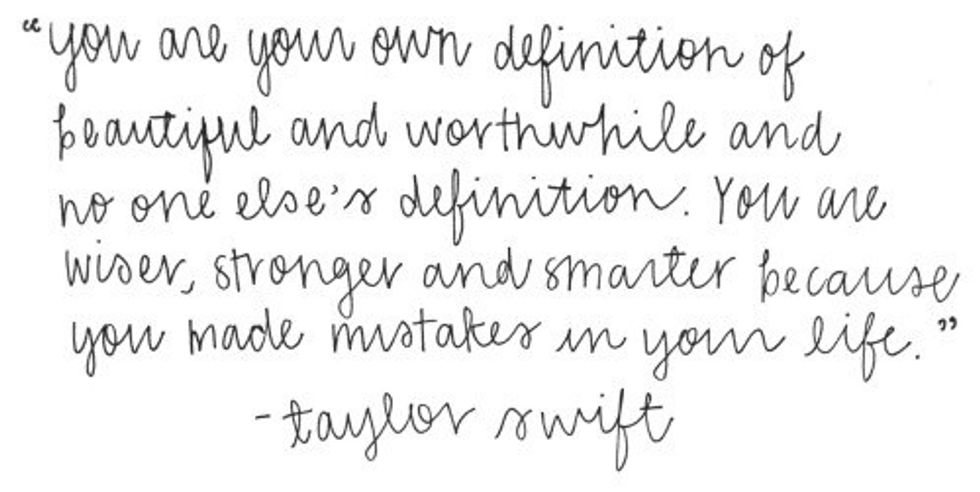 “you are your own definition of
beautiful and worthwhile and
no one else's definition. You are
wiser, stronger and smarter because
you made mistakes in your life.”
-taylor swift